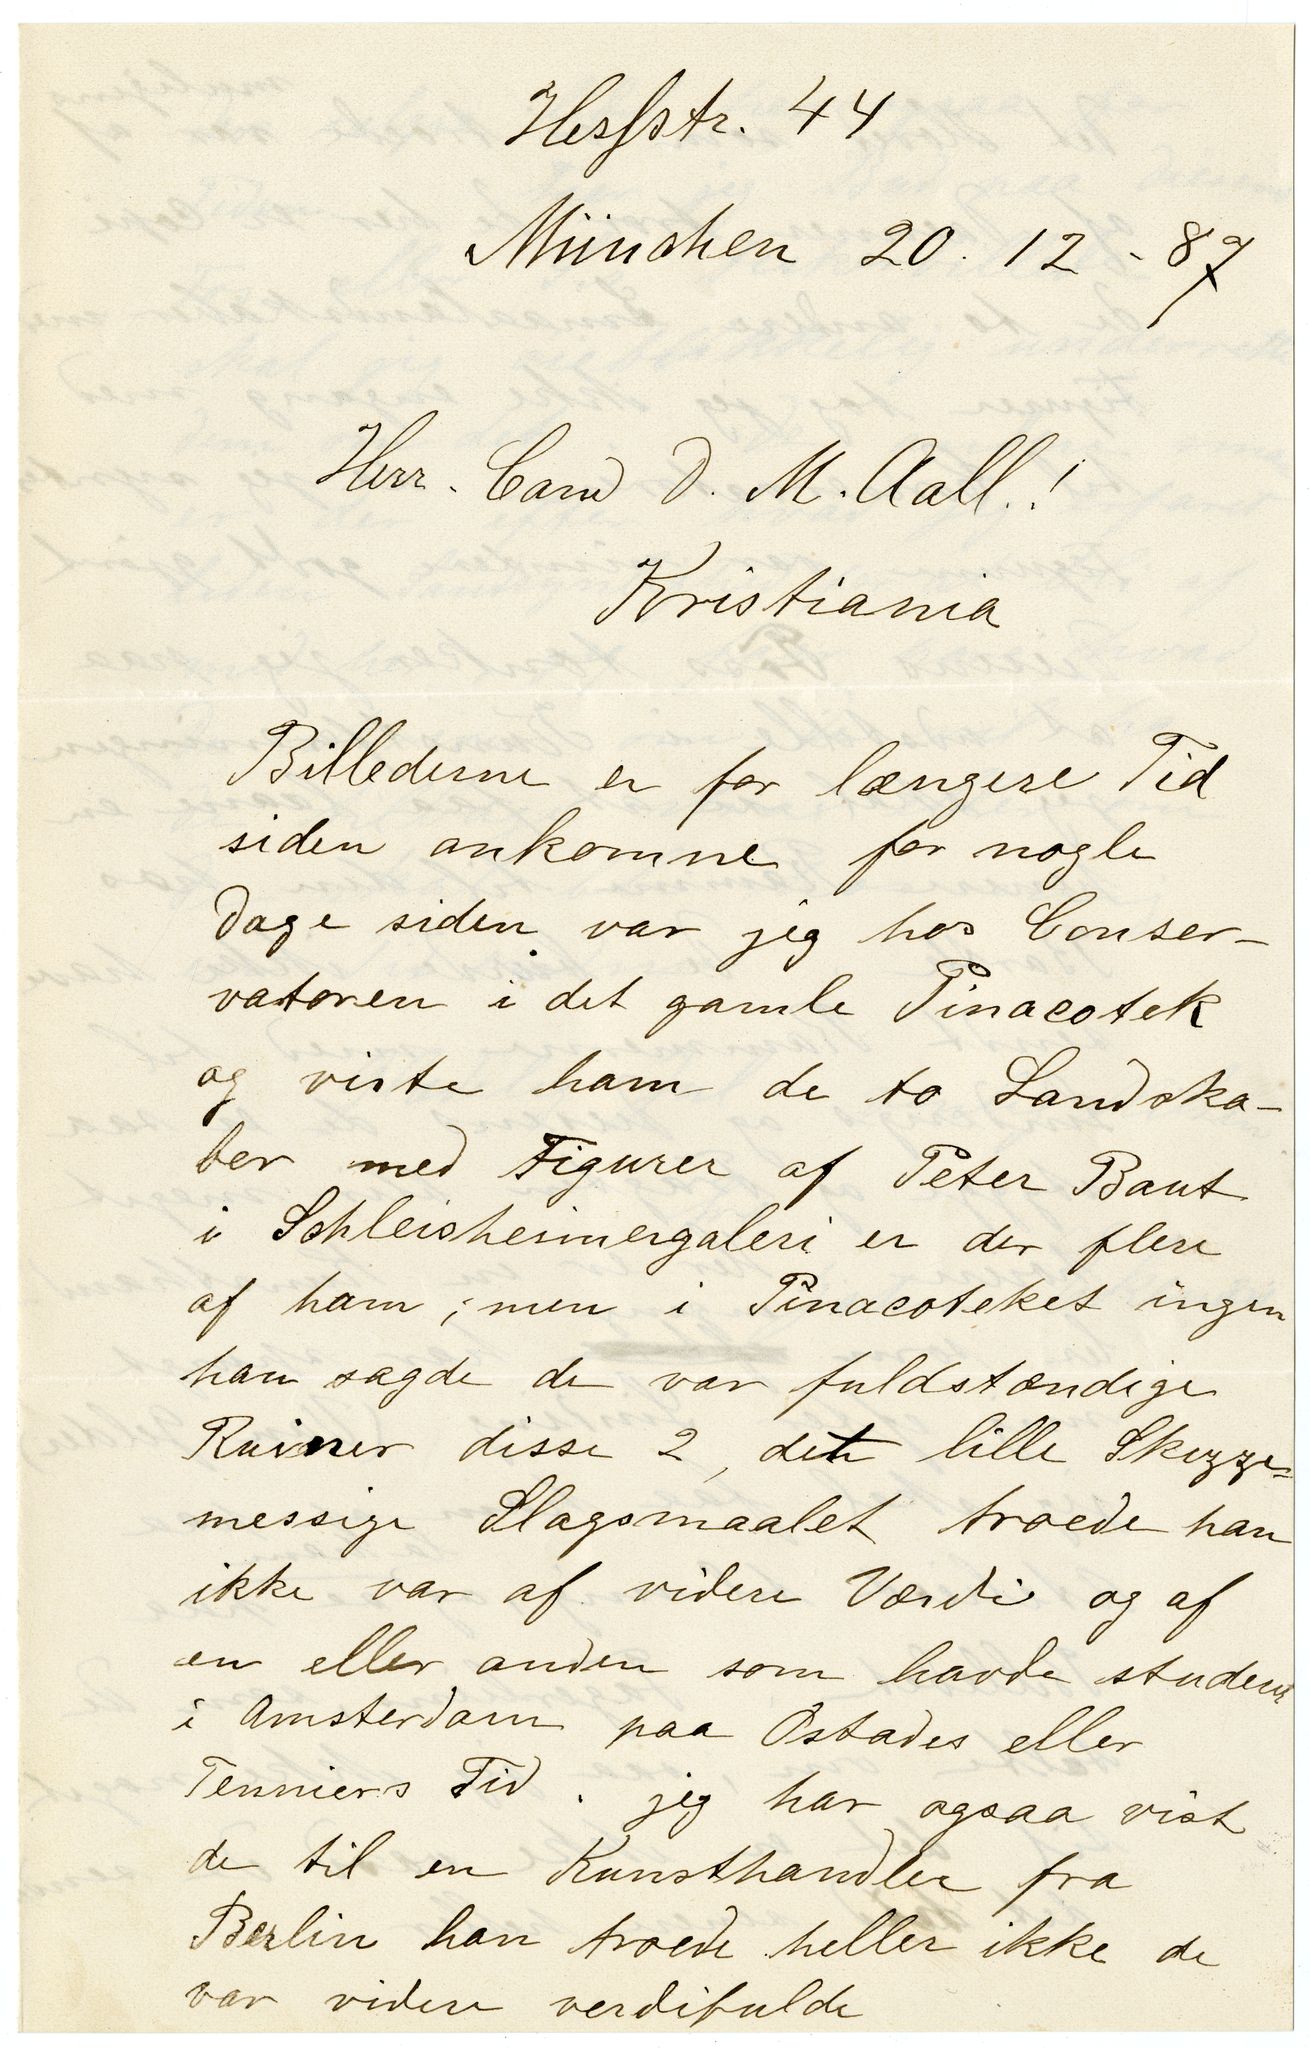 Hessstr. 44
München 20. 12 - 87
Herr. Cand D. M. Aall..!
Kristiania
Billederne er for længere Tid
siden ankomne for nogle
Dage siden var jeg hos Conser-
vatoren i det gamle Pinacotek
og viste ham de to Landska-
ber med Figurer af Peter Baut
i Schleisheimergaleri er der flere
af ham; men i Pinacoteket ingen
han sagde de var fuldstændige
Ruiner disse 2, det lille Skizze-
messige Slagsmaalet troede han
ikke var af videre Værdi og af
en eller anden som havde studeret
i Amsterdam paa Ostades eller
Tenniers Tid. jeg har ogsaa vist
de til en Kunsthandler fra
Berlin han troede heller ikke de
var videre verdifulde